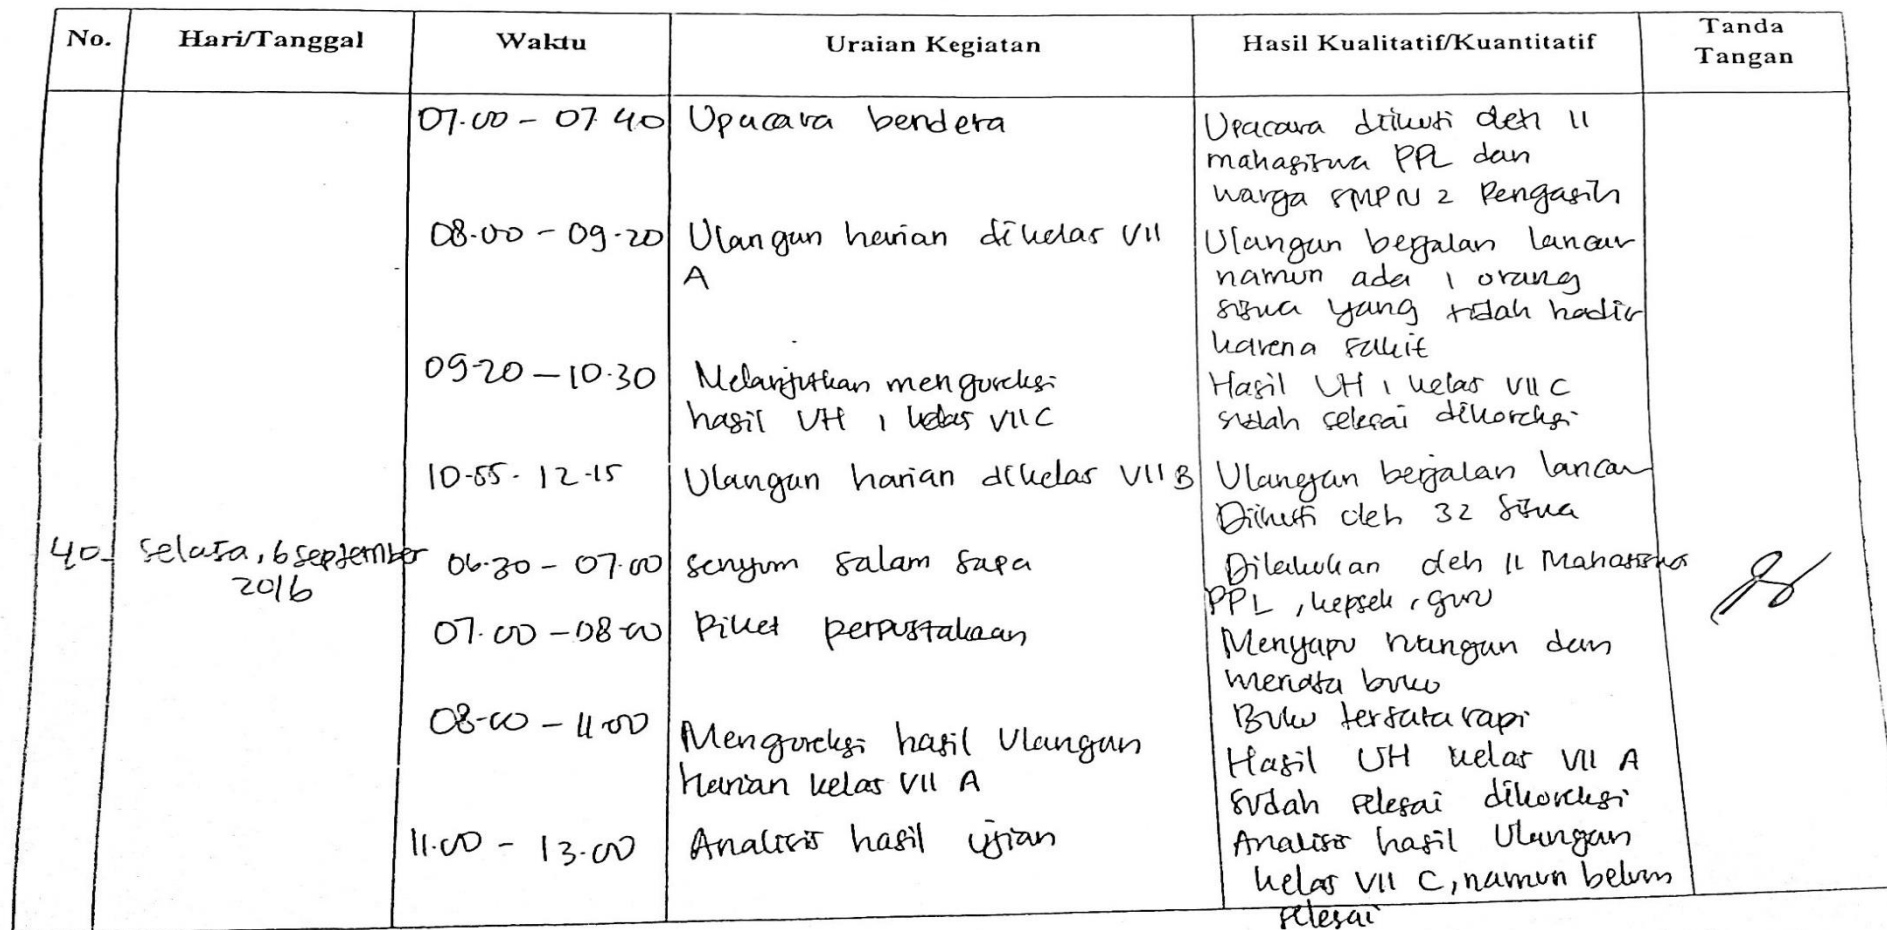 No. Hari/Tanggal Waktu Uraian Kegiatan Hasil Kualitatif/Kuantitatif Tanda Tangan
07.00 - 07.40 Upacara bendera Upacara diikuti oleh 11
mahasiswa PPL dan
warga SMPN 2 Pengasih
08.00 - 09.20 Ulangan harian dikelas VII Ulangan berjalan lancar
A namun ada 1 orang
siswa yang tidak hadir
karena sakit
09.20 - 10.30 Melanjutkan mengoreksi Hasil UH 1 kelas VII C
hasil UH 1 kelas VII C sudah selesai dikoreksi
10.55 - 12.15 Ulangan harian dikelas VII B Ulangan berjalan lancar
Diikuti oleh 32 siswa
40. Selasa, 6 September 06.30 - 07.00 Senyum salam sapa Dilakukan oleh 11 Mahasiswa
2016 PPL, kepsek, guru
07.00 - 08.00 Piket perpustakaan Menyapu ruangan dan
menata buku
08.00 - 11.00 Mengoreksi hasil Ulangan Buku tertata rapi
Harian kelas VII A Hasil UH kelas VII A
sudah selesai dikoreksi
11.00 - 13.00 Analisis hasil ujian Analisis hasil Ulangan
kelas VII C, namun belum
selesai